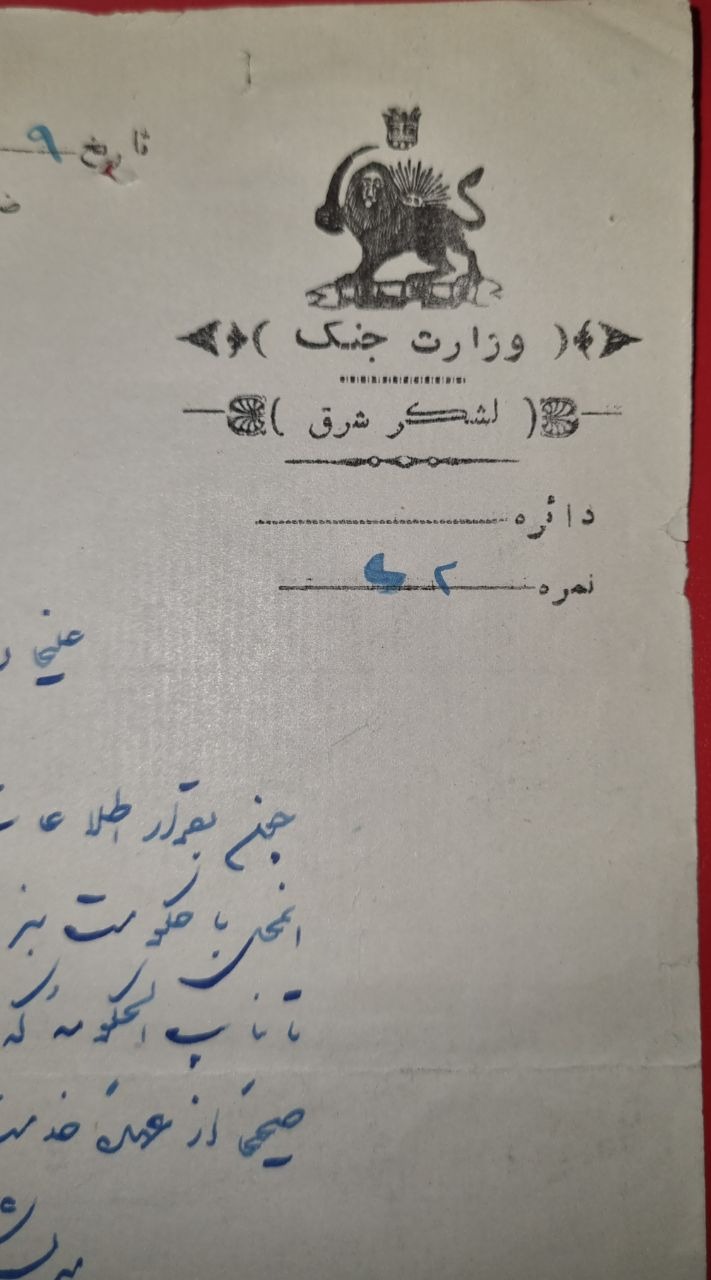 تاریخ ۹
( وزارت جنک )
( لشکر شرق )
دائره
نمره ۲
چون بقرار اطلاعا
انجمن با حکومت نیز
تا نایب الحکومه که
صحیحاً از عهده خدمت